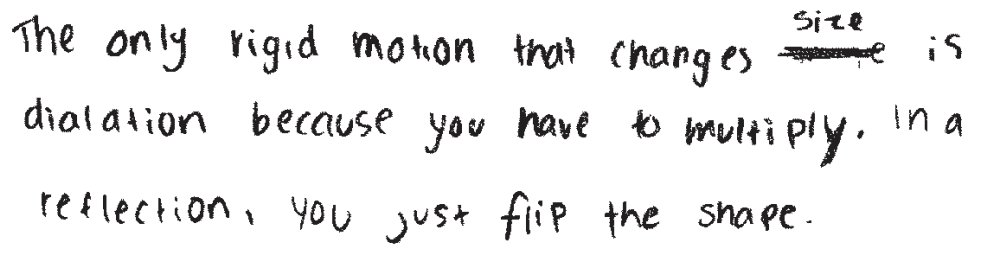 The only rigid motion that changes size is
dialation because you have to multiply. In a
reflection, you just flip the shape.